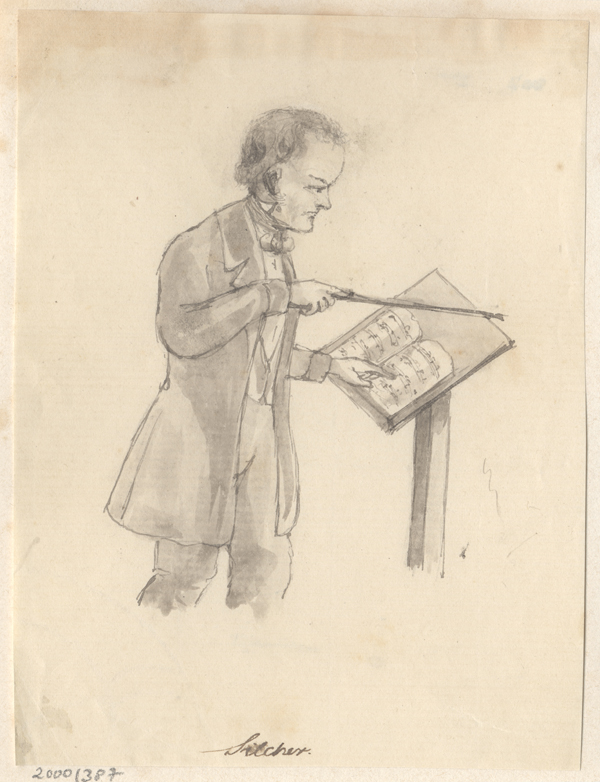 Silcher.
2000/387